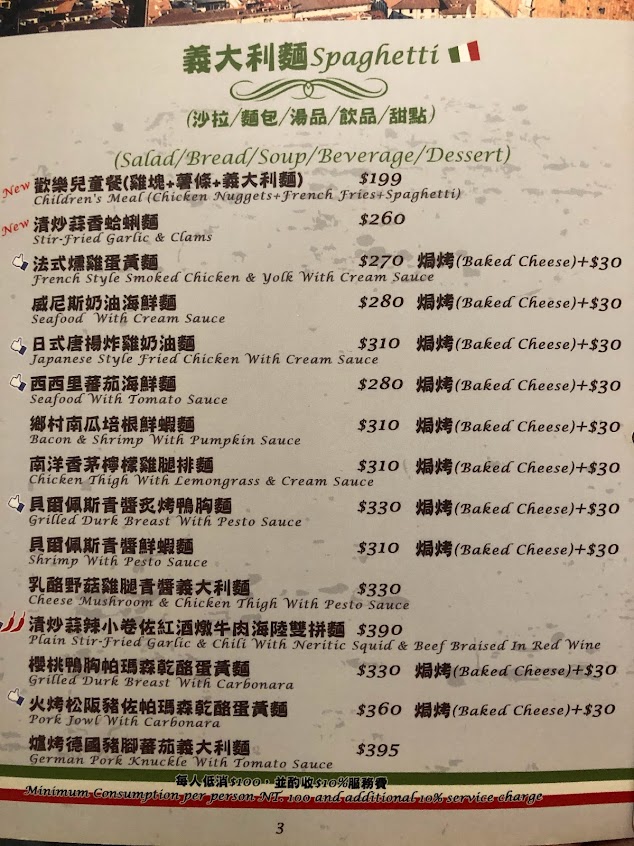 義大利麵Spaghetti
(沙拉/麵包/湯品/飲品/甜點)
(Salad/Bread/Soup/Beverage/Dessert)
New 歡樂兒童餐(雞塊+薯條+義大利麵) $199
Children's Meal (Chicken Nuggets+French Fries+Spaghetti)
New 清炒蒜香蛤蜊麵 $260
Stir-Fried Garlic & Clams
法式燻雞蛋黃麵 $270 焗烤(Baked Cheese)+$30
French Style Smoked Chicken & Yolk With Cream Sauce
威尼斯奶油海鮮麵 $280 焗烤(Baked Cheese)+$30
Seafood With Cream Sauce
日式唐揚炸雞奶油麵 $310 焗烤(Baked Cheese)+$30
Japanese Style Fried Chicken With Cream Sauce
西西里蕃茄海鮮麵 $280 焗烤(Baked Cheese)+$30
Seafood With Tomato Sauce
鄉村南瓜培根鮮蝦麵 $310 焗烤(Baked Cheese)+$30
Bacon & Shrimp With Pumpkin Sauce
南洋香茅檸檬雞腿排麵 $310 焗烤(Baked Cheese)+$30
Chicken Thigh With Lemongrass & Cream Sauce
貝爾佩斯青醬炙烤鴨胸麵 $330 焗烤(Baked Cheese)+$30
Grilled Durk Breast With Pesto Sauce
貝爾佩斯青醬鮮蝦麵 $310 焗烤(Baked Cheese)+$30
Shrimp With Pesto Sauce
乳酪野菇雞腿青醬義大利麵 $330
Cheese Mushroom & Chicken Thigh With Pesto Sauce
清炒蒜辣小卷佐紅酒燉牛肉海陸雙拼麵 $390
Plain Stir-Fried Garlic & Chili With Neritic Squid & Beef Braised In Red Wine
櫻桃鴨胸帕瑪森乾酪蛋黃麵 $330 焗烤(Baked Cheese)+$30
Grilled Durk Breast With Carbonara
火烤松阪豬佐帕瑪森乾酪蛋黃麵 $360 焗烤(Baked Cheese)+$30
Pork Jowl With Carbonara
爐烤德國豬腳蕃茄義大利麵 $395
German Pork Knuckle With Tomato Sauce
每人低消$100，並酌收$10%服務費
Minimum Consumption per person NT. 100 and additional 10% service charge
3